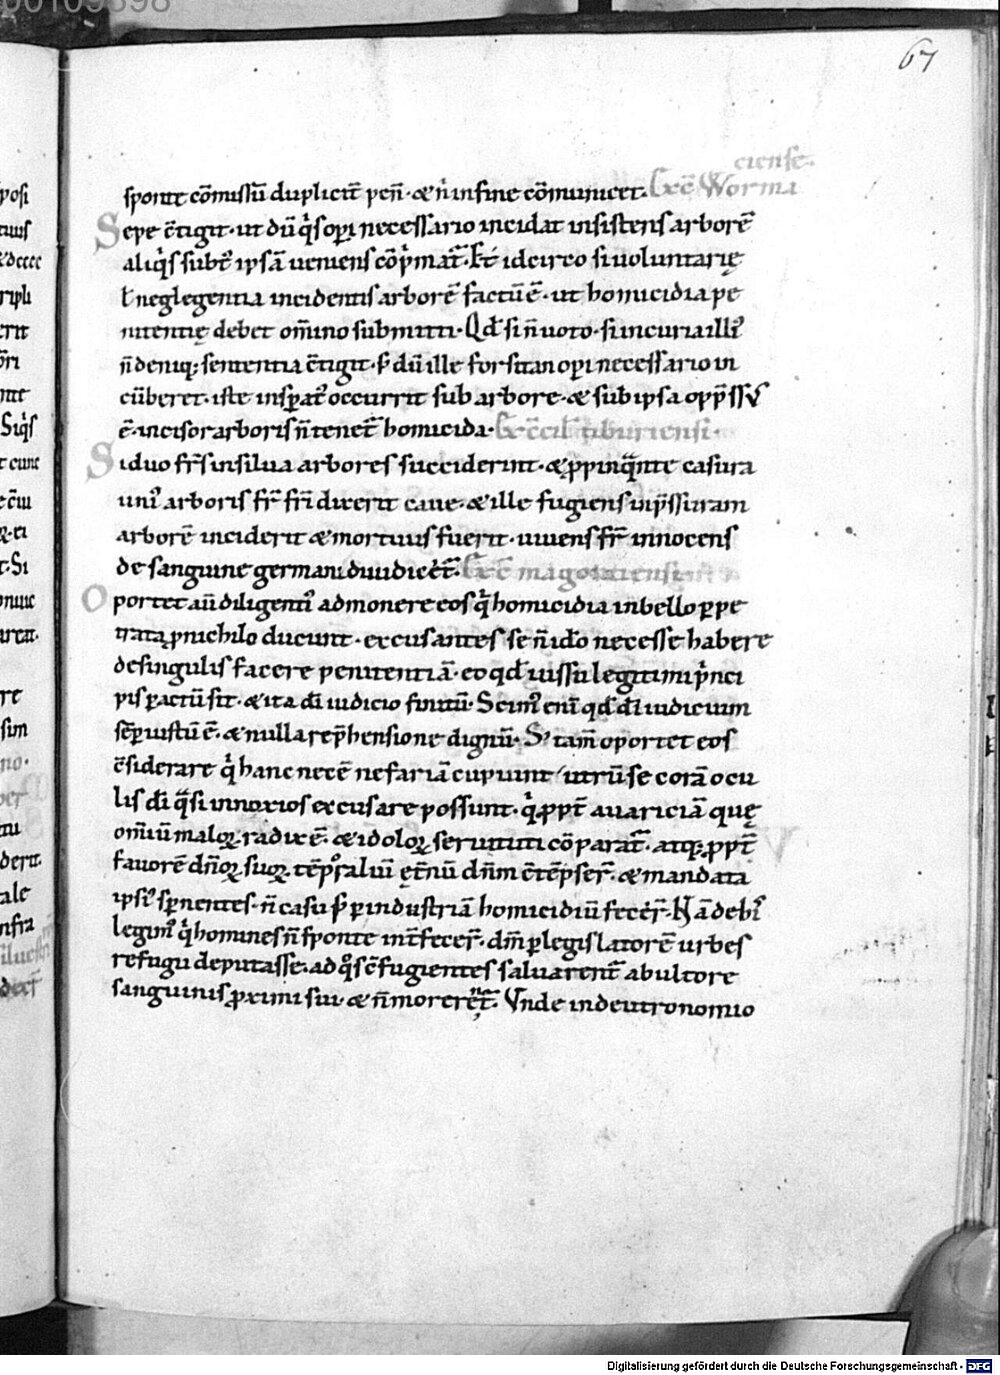 67
sponte cōmissū duplicit̄ pen̄· & n̄ in fine cōmunicet. Ex c̄ Worma
ciense.
Sepe c̄tigit· ut dū q̇s operi necessario incidat insistens arborē
aliq̇s subt᷒ ipsā ueniens cōp̄mat᷑. Et idcirco si uoluntarię
ł neglegentia incidentis arborē factū ē· ut homicidia pe
nitentię debet om̄ino submitti· Qd̄ si n̄ uoto· si incuria illi᷒
n̄ deniq; sententia c̄tigit· s; dū ille forsitan operi necessario in
cūberet· iste insperat᷒ occurrit sub arbore· & sub ipsa opp̄ssus
ē· incisor arboris n̄ tenet᷑ homicida· Ex c̄cil tiburiensi·
Si duo fr̄s in silua arbores succiderint· & ꝓpinq̄nte casura
uni᷒ arboris fr̄ fr̄i dixerit caue· & ille fugiens in p̄ssuram
arborē inciderit & mortuus fuerit· uiuens fr̄ innocens
de sanguine germani diiudicet᷑· Ex c̄ magontiensi
Oportet aū diligenti᷒ admonere eos q̇ homicidia in bello ꝑpe
trata ꝓ nichilo ducunt· excusantes se n̄ ideo necesse habere
de singulis facere penitentiā· eo qd̄ iussu legitimi ṗnci
pis ꝑactū sit· & ita dī iudicio finitū· Scim᷒ enī qd̄ dī iudicium
semꝑ iustū ē· & nulla rep̄hensione dignū· S; tam̄ oportet eos
c̄siderare q̇ hanc necē nefariā cupiunt utrū se corā ocu
lis dī q̄si innoxios excusare possunt· q̇ ꝓpt̄ auariciā quę
om̄iū maloꝝ radix ē· & idoloꝝ seruituti cōparat᷑· atq; ꝓpt̄
fauorē dn̄oꝝ suoꝝ tēporaliū ęt̄nū dn̄m c̄tēpser̄· & mandata
ipsi᷒ sꝑnentes· n̄ casu s; ꝑ industriā homicidiū fecer̄· Nā debi᷒
legim᷒ q̇ homines n̄ sponte int̄fecer̄· dn̄m ꝑ legislatorē urbes
refugii deputasse· ad q̊s c̄fugientes saluarent᷑ ab ultore
sanguinis ꝓximi sui· & n̄ morerēt᷑. Vnde in deutronomio
Digitalisierung gefördert durch die Deutsche Forschungsgemeinschaft - DFG